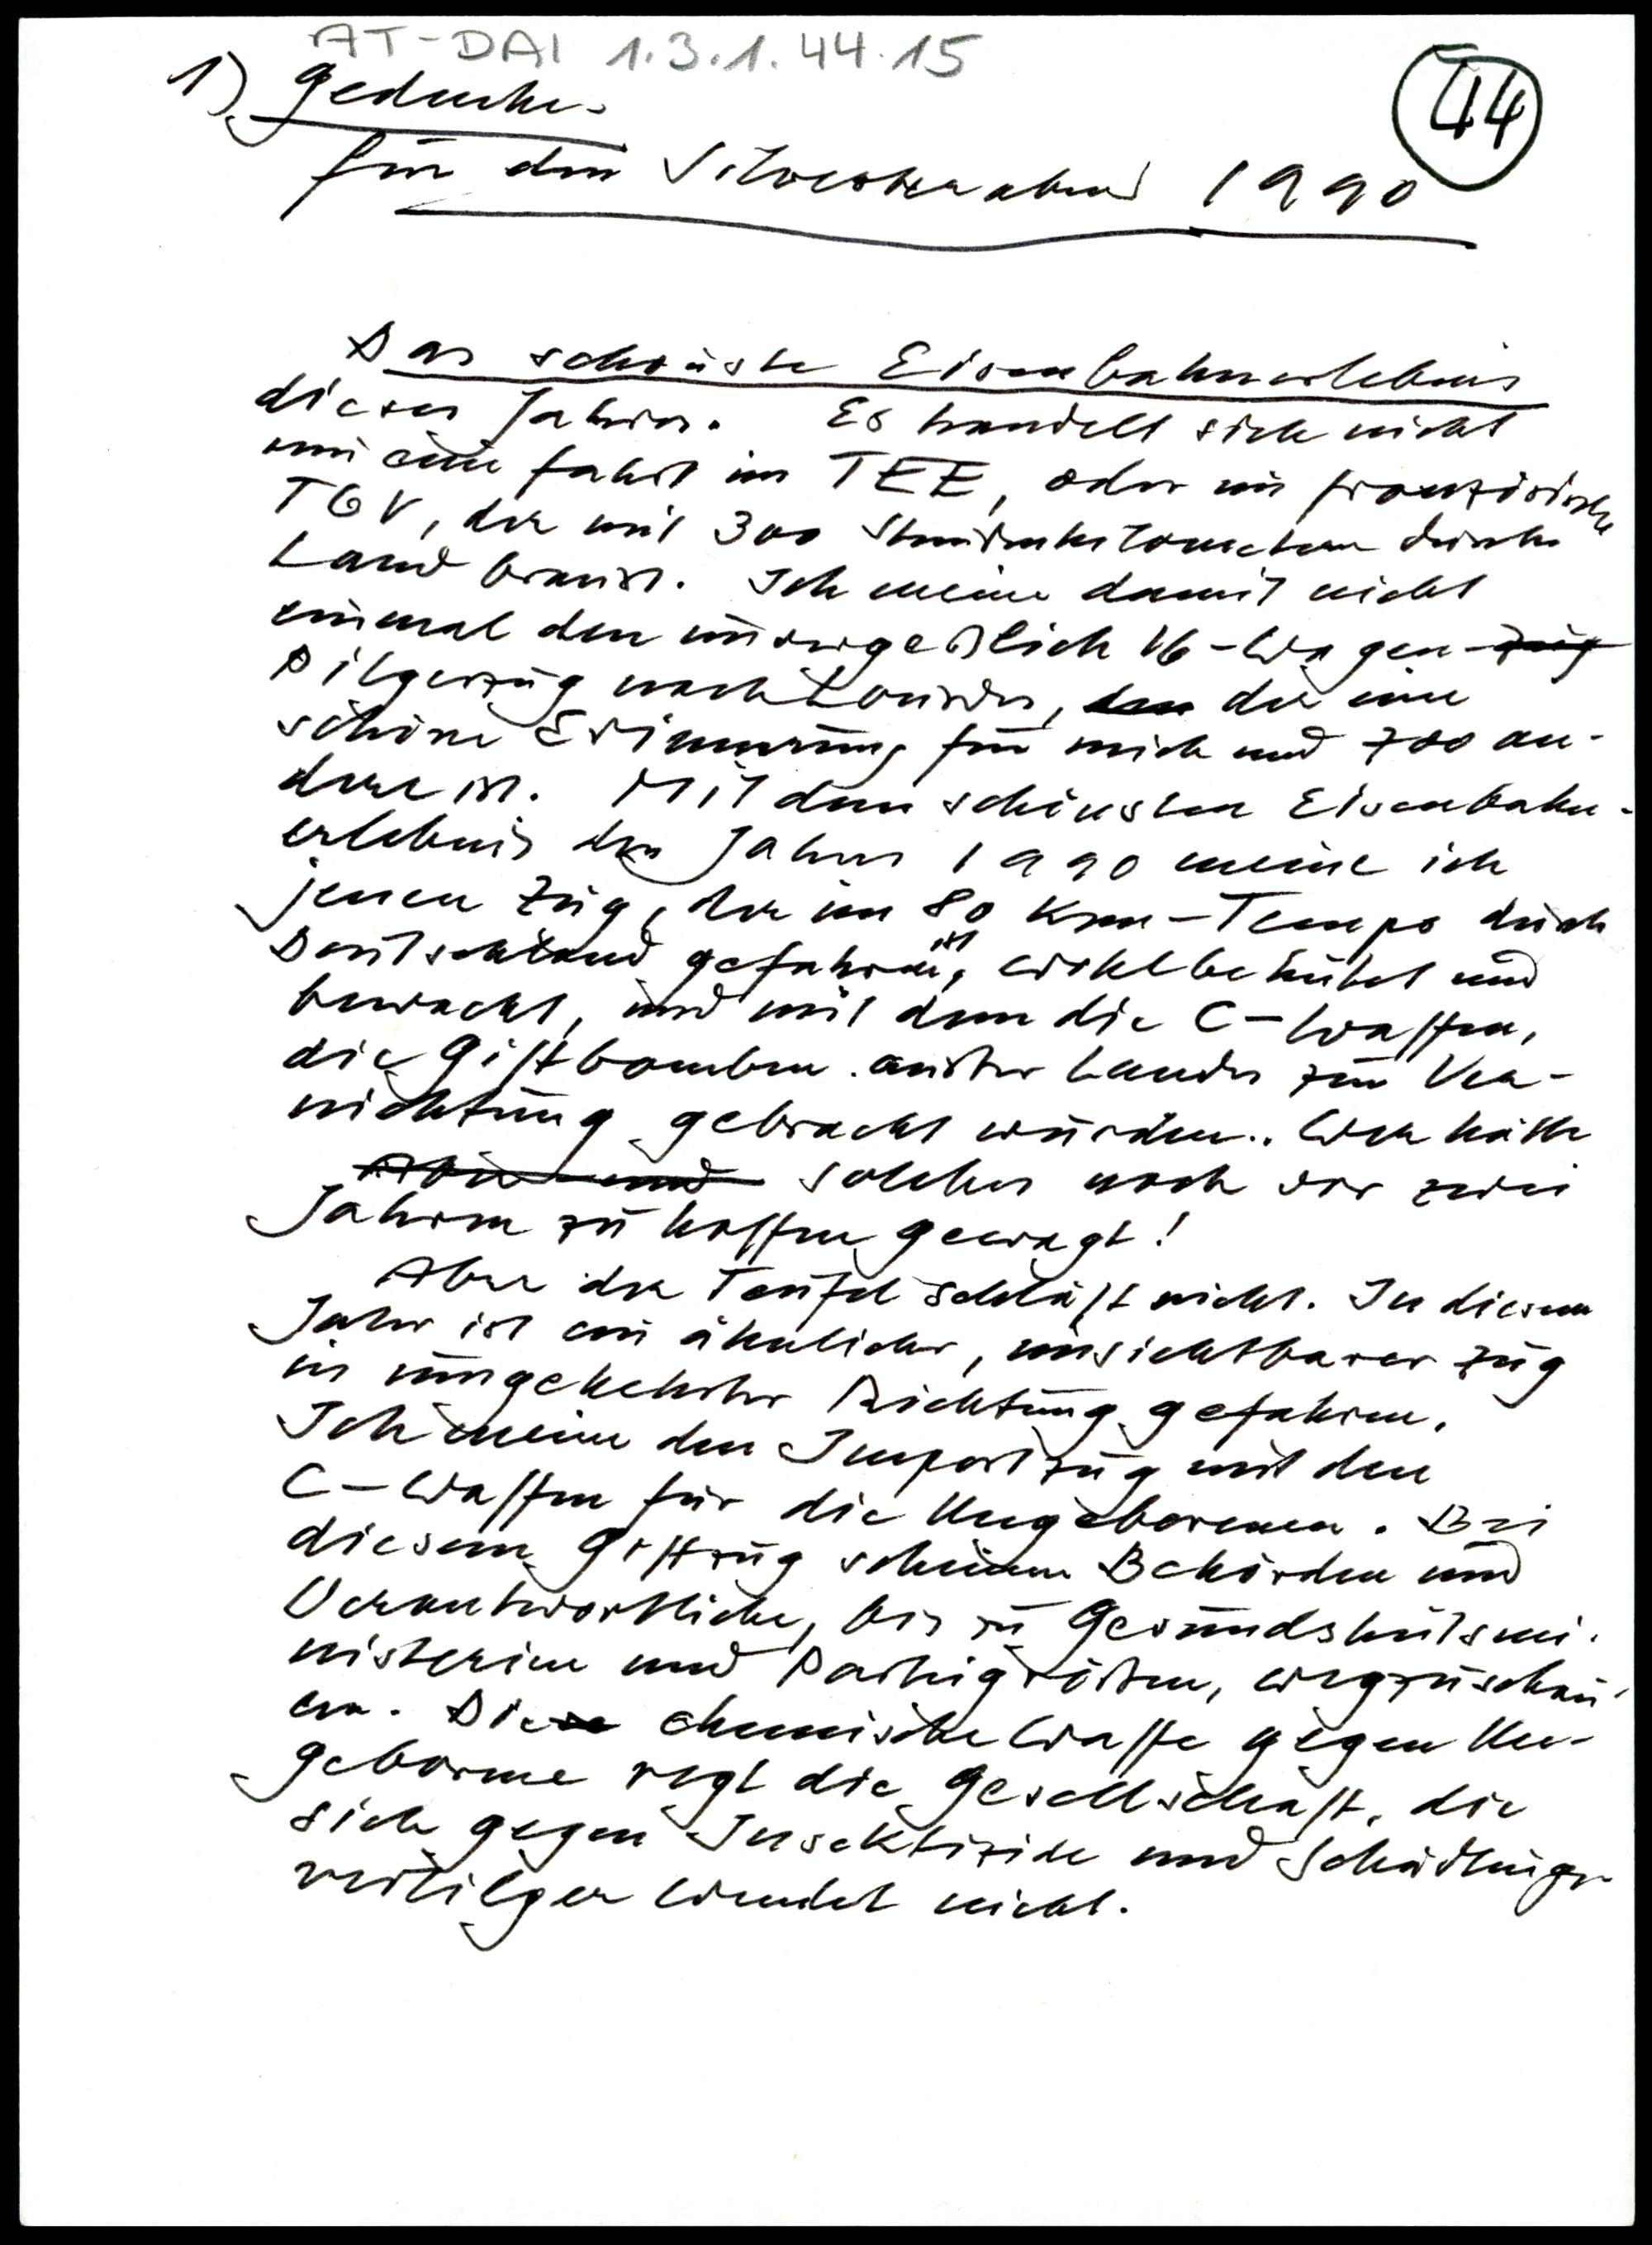 AT-DAI 1.3.1.44.15
44
1) Gedanken
für den Silvesterabend 1990
Das schönste Eisenbahnerlebnis
dieses Jahres. Es handelt sich nicht
um eine Fahrt im TEE, oder im französische
TGV, der mit 300 Stundenkilometern durchs
Land braust. Ich meine damit nicht
einmal den unvergeßlich 16-Wagen-Zug
Pilgerzug nach Lourdes, den der eine
schöne Erinnerung für mich und 700 an-
dere ist. Mit dem schönsten Eisenbahn-
erlebnis des Jahres 1990 meine ich
jenen Zug, der im 80 Km-Tempo durch
Deutschland gefahren ist, wohlbehütet und
bewacht, und mit dem die C-Waffen,
die Giftbomben außer Landes zur Ver-
nichtung gebracht wurden. Wer hätte
solches noch vor zwei
Jahren zu hoffen gewagt!
Aber der Teufel schläft nicht. In diesem
Jahr ist ein ähnlicher, unsichtbarer Zug
in umgekehrter Richtung gefahren.
Ich meine den Importzug mit den
C-Waffen für die Ungeborenen. Bei
diesem Giftzug scheinen Behörden und
Verantwortliche, bis zu Gesundsheitsmi-
nisterien und Parteigrößen, wegzuschau-
en. Diese chemische Waffe gegen Un-
geborene regt die Gesellschaft, die
sich gegen Insektizide und Schädlings-
vertilger wendet nicht.